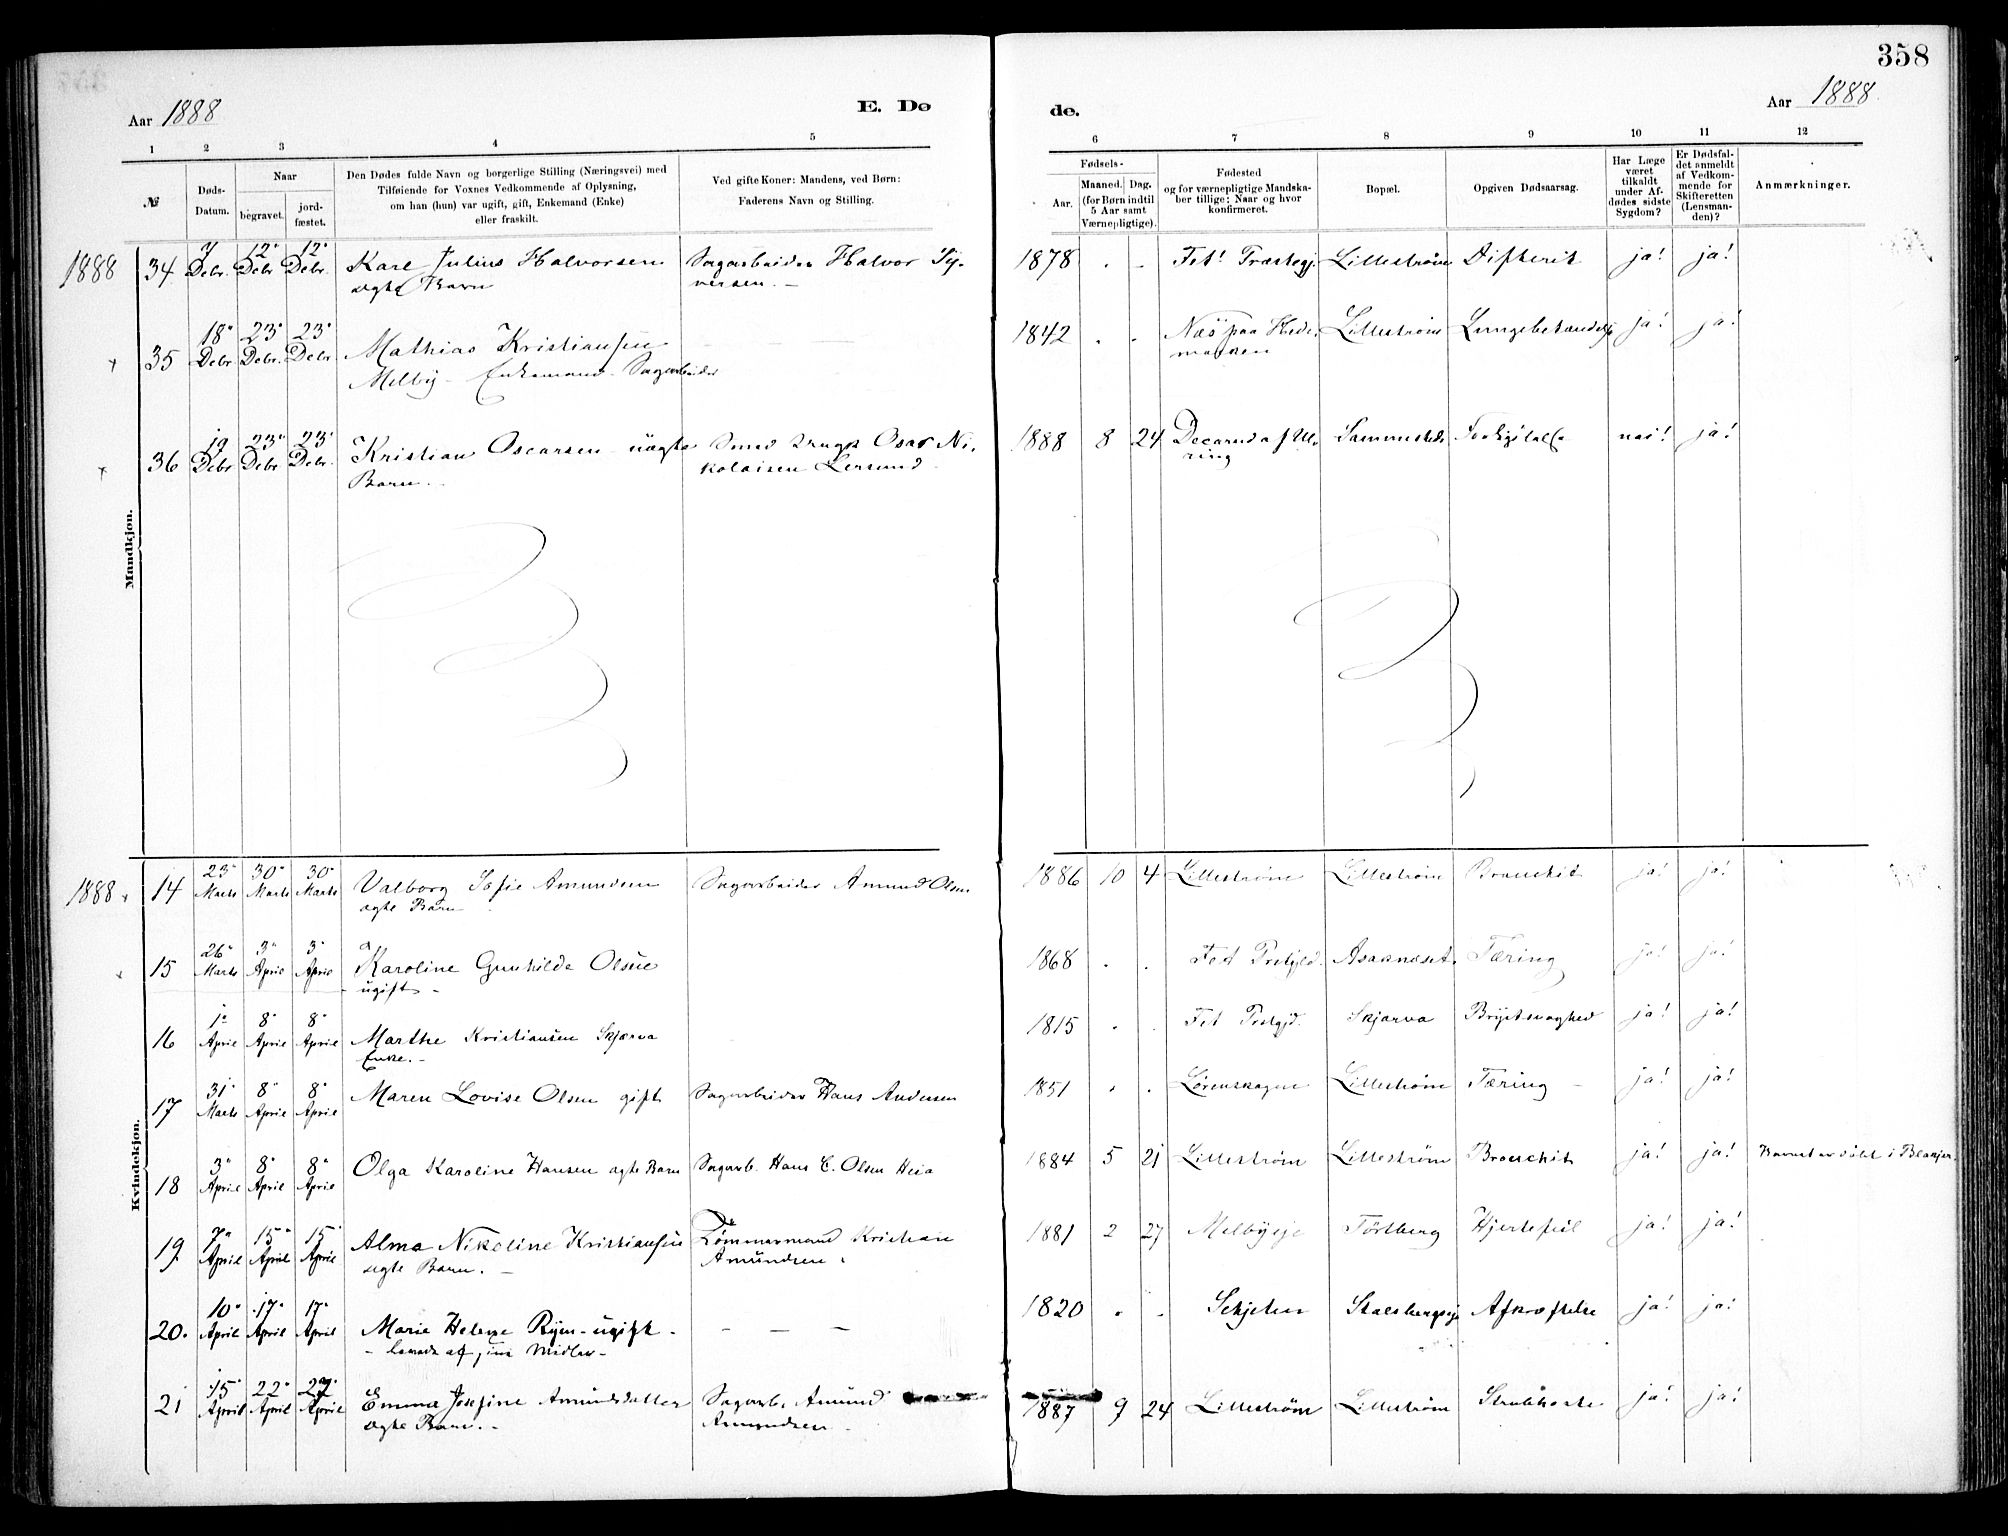 358
Aar 1888
E. Dø
de.
Aar 1888.
1 2 3 4 5 6 7 8 9 10 11 12
№
Døds-
Datum.
Naar
begravet.
jord-
fæstet.
Den Dødes fulde Navn og borgerlige Stilling (Næringsvei) med
Tilføiende for Voxnes Vedkommende af Oplysning,
om han (hun) var ugift, gift, Enkemand (Enke)
eller fraskilt.
Ved gifte Koner: Mandens, ved Børn:
Faderens Navn og Stilling.
Fødsels-
Aar.
Maaned. Dag.
(for Børn indtil
5 Aar samt
Værnepligtige).
Fødested
og for værnepligtige Mandska-
ber tillige: Naar og hvor
konfirmeret.
Bopæl.
Opgiven Dødsaarsag.
Har Læge
været
tilkaldt
under Af-
dødes sidste
Sygdom?
Er Dødsfal-
det anmeldt
af Vedkom-
mende for
Skifteretten
(Lensman-
den)?
Anmærkninger.
Mandkjøn.
1888 34 7 Debr. 12 Debr 12 Debr. Karl Julius Halvorsen Sagarbeider Halvor Sy- 1878 Fet Præstegj. Lillestrøm Difterit ja! ja!
ægte Barn versen. -
35 18 Debr 23 Debr. 23 Debr. Mathias Kristiansen 1842 Næs paa Hede- Lillestrøm Lungebetændelse ja! ja!
Melby - Enkemand - Sagarbeider marken
36 19 Debr 23 Debr 23 Debr. Kristian Oscarsen uægte Smed Oscar Ni- 1888 8 24 Sammesteds nei! ja!
Barn. kolaisen Lersund
Kvindekjøn.
1888 14 23 Marts 30 Marts 30 Marts Valborg Sofie Amundsen Sagarbeider Amund Olsen 1886 10 4 Lillestrøm Lillestrøm Bronchit ja! ja!
ægte Barn
15 26 Marts 3 April 3 April Karoline Gunhilde Olsen 1868 Fet Prstgjld. Asaknæset Tæring ja! ja!
ugift -
16 1 April 8 April 8 April Marthe Kristiansen Skjærva 1815 Fet Prstgjd. Skjærva Brystsvaghed ja! ja!
Enke. -
17 31 Marts 8 April 8 April Maren Lovise Olsen gift Sagarbeider Hans Andersen 1851 Lørenskogen Lillestrøm Tæring - ja! ja!
18 3 April 8 April 8 April Olga Karoline Hansen ægte Barn Sagarb. Hans C. Olsen Heia 1884 5 21 Lillestrøm Lillestrøm Bronchit ja! ja! Barnet er død i Blakjer.
19 7 April 15 April 15 April Alma Nikoline Kristiansen Tømmermand Kristian 1881 2 27 Melbyeje Törtberg Hjertefeil ja! ja!
ægte Barn. - Amundsen.
20. 10 April 17 April 17 April Marie Helene Ryen - ugift - - - - 1820 Skjetten Stalsbergeje Afkræftelse ja! ja!
- levede af sine Midler -
21 15 April 22 April 22 April Emma Josefine Amundsdatter Sagarb. Amund 1887 9 24 Lillestrøm Lillestrøm Strubhoste ja! ja!
ægte Barn. - Amundsen